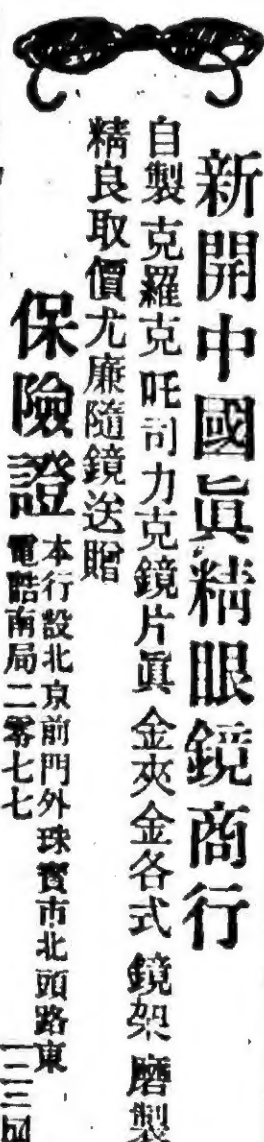 新開中國眞精眼鏡商行
自製克羅克吒司力克鏡片眞金夾金各式鏡架磨製
精良取價尤廉隨鏡送贈
保險證
本行設北京前門外珠寶市北頭路東
電話南局二零七七
一二三四